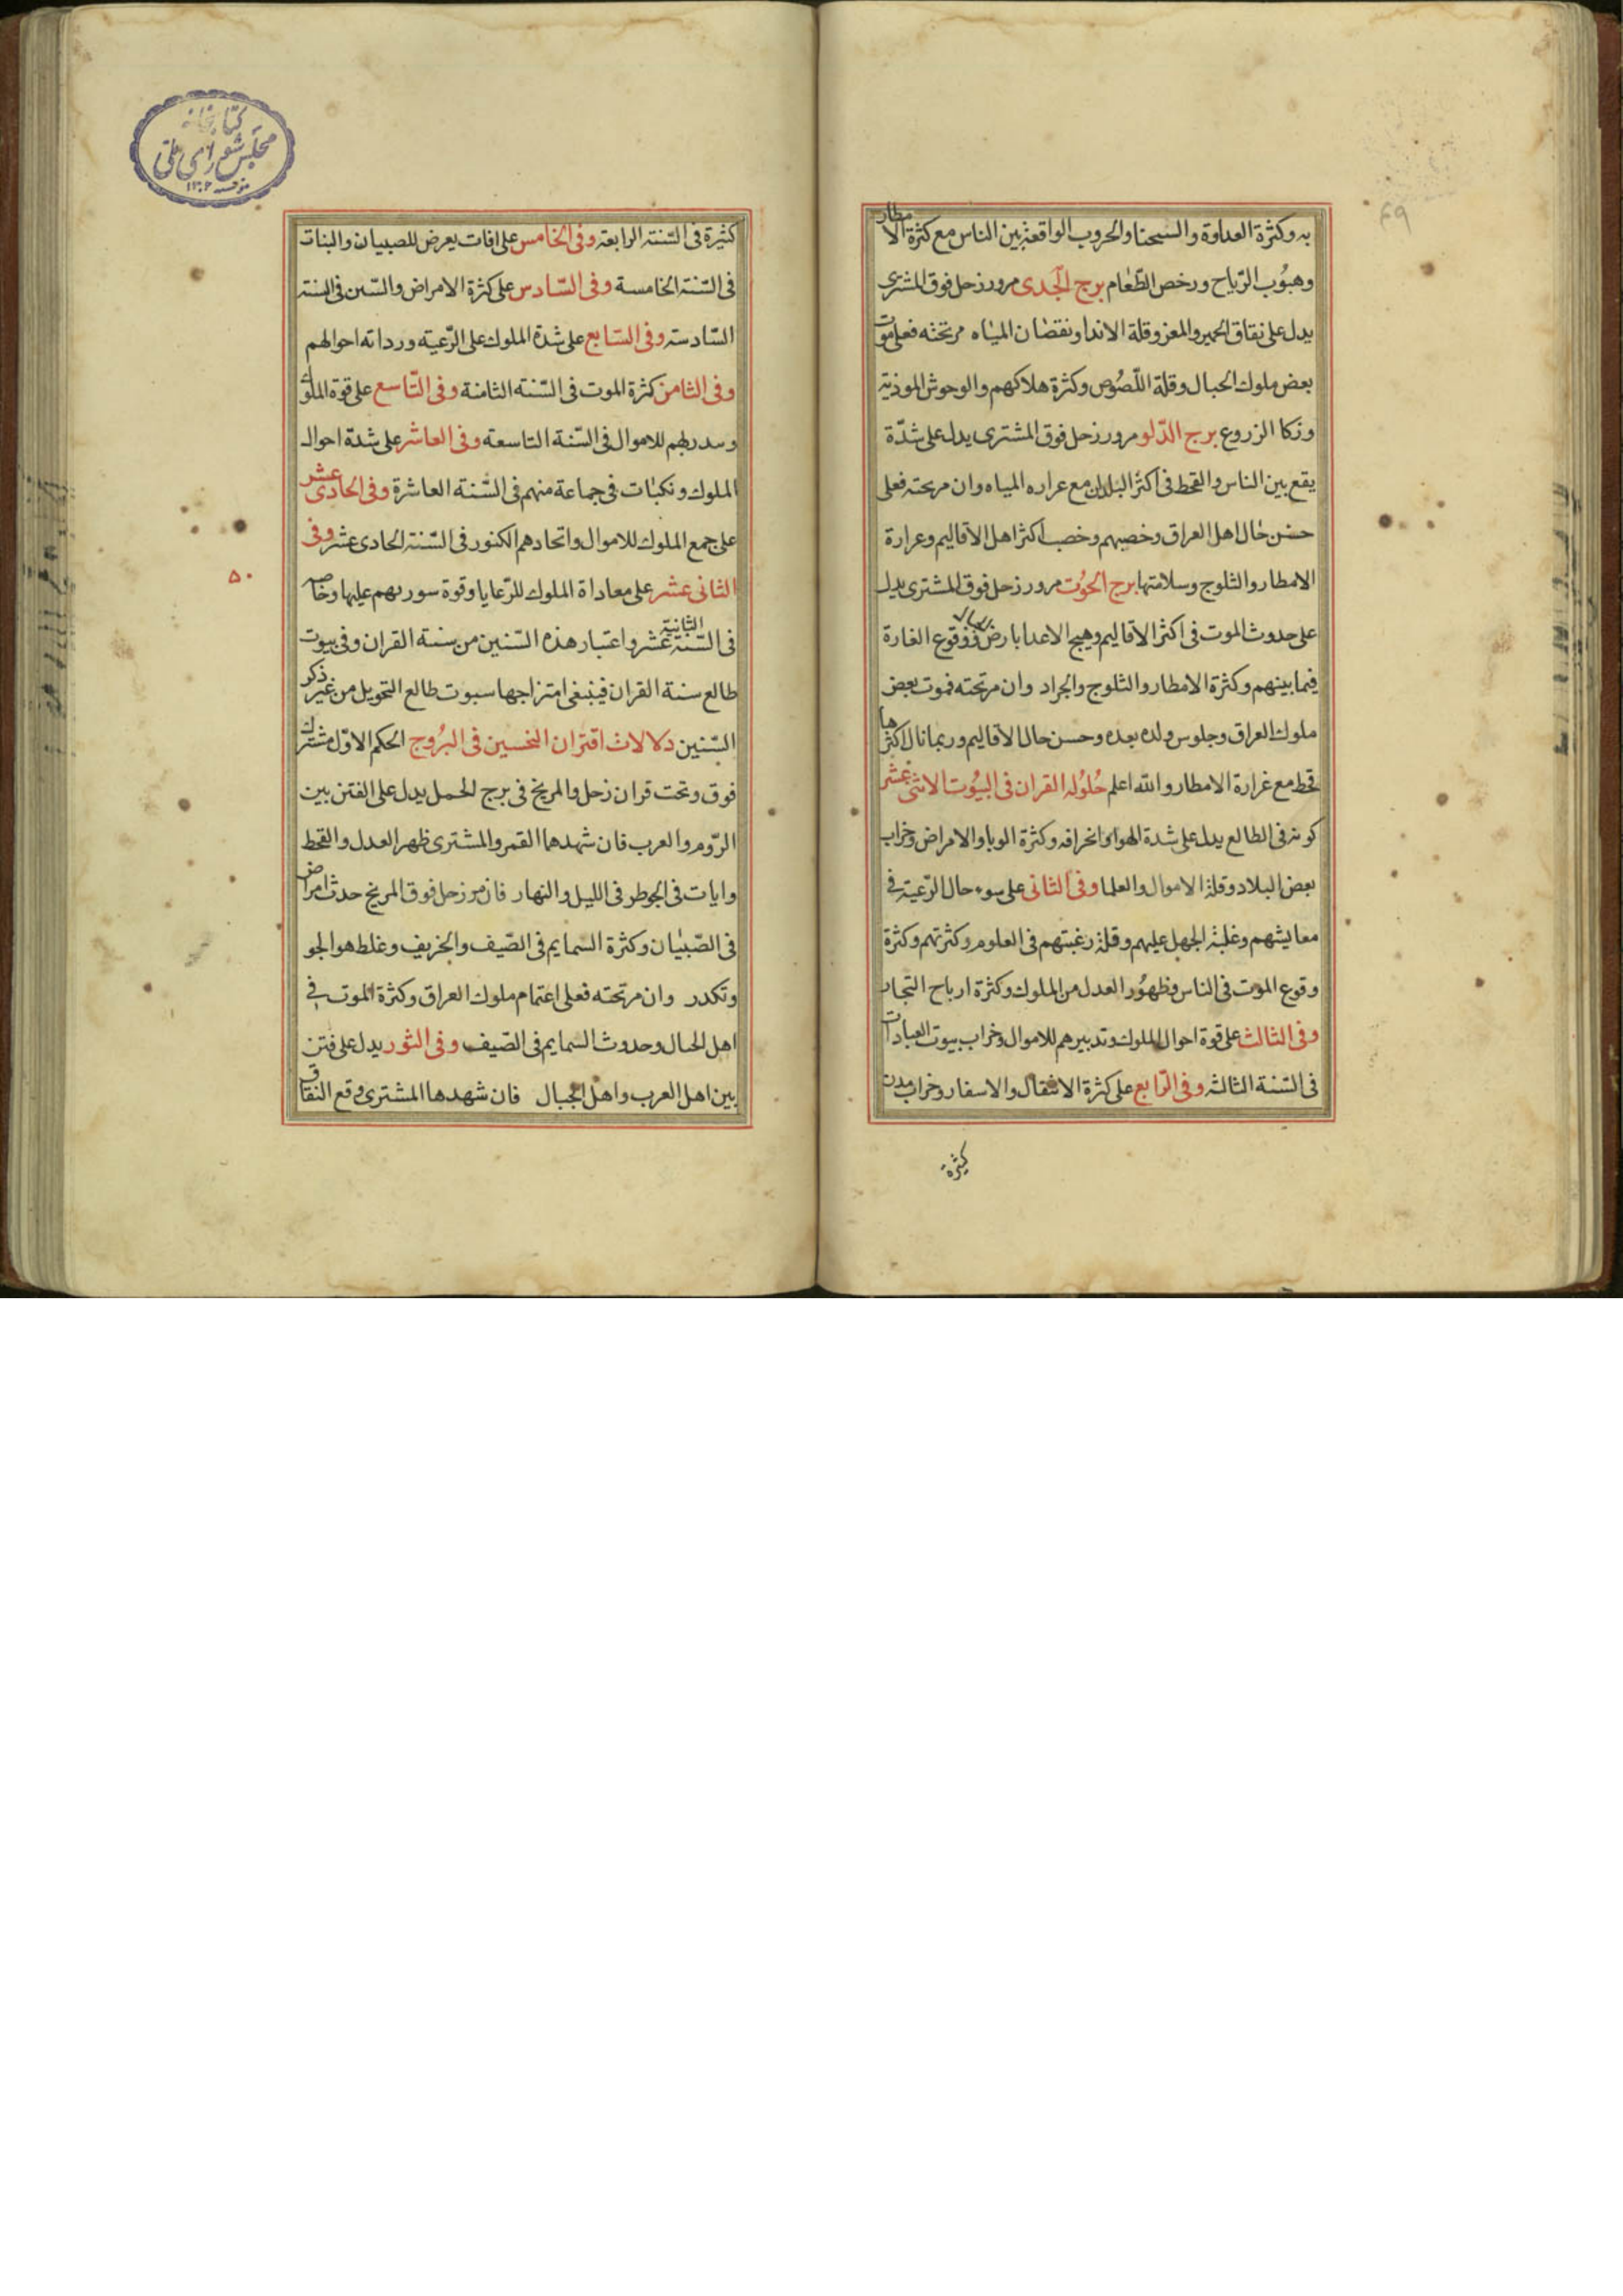 به وكثرة العداوة والسحنا والحروب الواقعة بين الناس مع كثرة الامطار
وهبُوب الرّياح ورخص الطّعام برج الجدى مرور زحل فوق المشترى
يدل على نفاق الحمير والمعز وقلة الاندا ونقصان المياه مر تحته فعلى موت
بعض ملوك الحبال وقلة اللّصُوص وكثرة هلاكهم والوحوش الموذية
وزكا الزروع برج الدّلو مرور زحل فوق المشترى يدل على شدّة
يقع بين الناس والقحط فى اكثر البلدان مع عراره المياه وان مر تحته فعلى
حسن حال اهل العراق وخصبهم وخصب اكثر اهل الاقاليم وعرارة
الامطار والثلوج وسلامتها برج الحُوت مرور زحل فوق المشترى يدل
على حدوث الموت فى اكثر الاقاليم وهيج الاعدا بارض ووقوع الغارة
فيما بينهم وكثرة الامطار والثلوج والجراد وان مر تحته فموت بعض
ملوك العراق وجلوس ولده بعده وحسن حال الاقاليم وربما نال اكثرها
قحط مع غرارة الامطار والله اعلم حُلوُله القران فى البيُوت الاثنى عشر
كونه فى الطالع يدل على شدة الهوا وانحرافه وكثرة الوبا والامراض وخراب
بعض البلاد وقلة الاموال والعلما وفى الثانى على سوء حال الرّعية فى
معايشهم وغلبة الجهل عليهم وقلة رغبتهم فى العلوم وكثرتهم وكثرة
وقوع الموت فى الناس وظهُور العدل من الملوك وكثرة ارباح التجار
وفى الثالث على قوة احوال الملوك وتدبيرهم للاموال وخراب بيوت العبادات
فى السّنة الثالثة وفى الرّابع على كثرة الانتقال والاسفار وخراب مدن
كثيرة
كثيرة فى السّنة الرابعة وفى الخامس على افات يعرض للصبيان والبنات
فى السّنة الخامسة وفى السّادس على كثرة الامراض والسّبن فى السنة
السّادسة وفى السّابع على شدة الملوك على الرّعية ورداته احوالهم
وفى الثامن كثرة الموت فى السّنة الثامنة وفى التّاسع على قوة الملوك
وسدربهم للاموال فى السّنة التاسعة وفى العاشر على شدة احوال
الملوك ونكبات فى جماعة منهم فى السّنة العاشرة وفى الحادى عشر
على جمع الملوك للاموال واتحادهم الكنور فى السّنة الحادى عشر وفى
الثانى عشر على معاداة الملوك للرّعايا وقوة سورىهم عليها وخاصه
فى السّنة الثانية عشر واعتبار هذه السّنين من سنة القران وفى بيوت
طالع سنة القران فينبغى امتزاجها سبوت طالع التحويل من غير ذكر
السّنين دلالات اقتران النحسين فى البرُوج الحكم الاوّل مشترك
فوق وتحت قران زحل والمريخ فى برج الحمل يدل على الفتن بين
الرّوم والعرب فان شهدهما القمر والمشترى ظهر العدل والقحط
وايات فى الجو طر فى الليل والنهار فان مر زحل فوق المريخ حدث امراض
فى الصّبيان وكثرة السمايم فى الصّيف والخريف وغلظ هوا الجو
وتكدر وان مر تحته فعلى اغتمام ملوك العراق وكثرة الموت فى
اهل الحبال وحدوث السمايم فى الصّيف وفى الثور يدل على فتن
بين اهل العرب واهل الجبال فان شهدها المشترى وقع النفاق
كتابخانه
مجلس شورای ملی
۵۰
۴۹